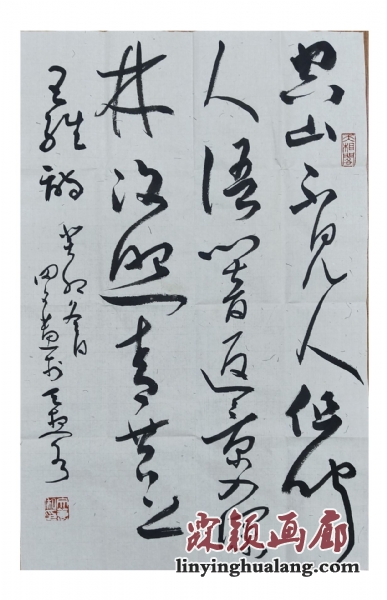 空山不見人但聞
人語響返景入深
林復照青苔上
王維詩
癸卯冬日
霖颖画廊
linyinghualang.com